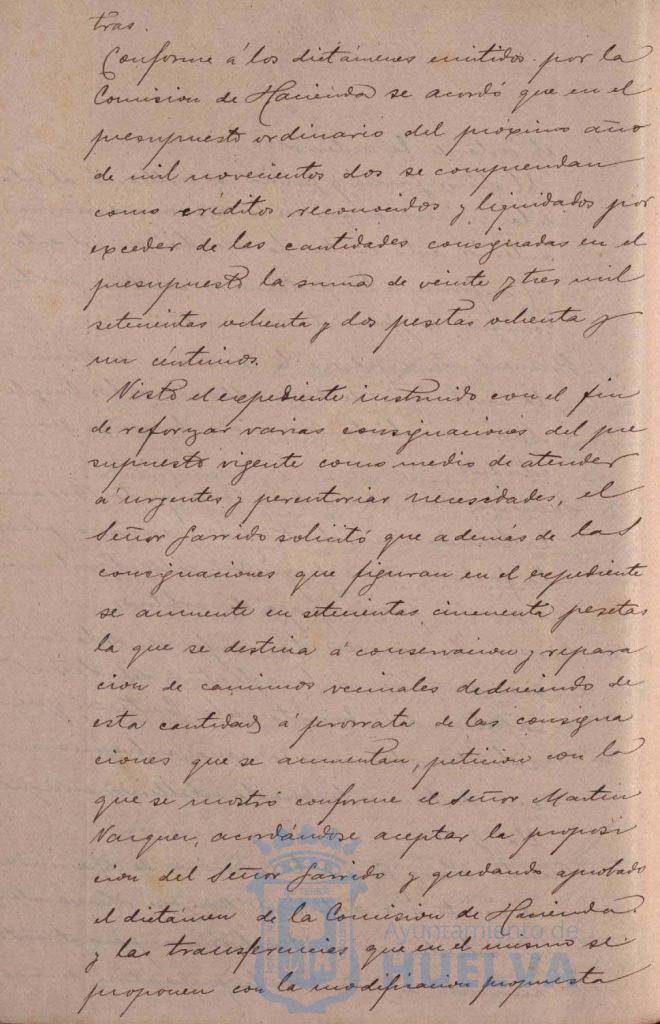 tras.
Conforme á los dictámenes emitidos por la
Comision de Hacienda se acordó que en el
presupuesto ordinario del próximo año
de mil novecientos dos se comprendan
como créditos reconocidos y liquidados por
exceder de las cantidades consignadas en el
presupuesto la suma de veinte y tres mil
setecientas ochenta y dos pesetas ochenta y
un céntimos.
Visto el expediente instruido con el fin
de reforzar varias consignaciones del pre
supuesto vigente como medio de atender
á urgentes y perentorias necesidades, el
Señor Garrido solicitó que además de las
consignaciones que figuran en el expediente
se aumente en setecientas cincuenta pesetas
la que se destina á conservacion y repara
cion de caminos vecinales deduciendo de
esta cantidad á prorrata de las consigna
ciones que se aumentan, peticion con la
que se mostró conforme el Señor Martin
Vazquez, acordándose aceptar la proposi
cion del Señor Garrido y quedando aprobado
el dictámen de la Comision de Hacienda
y las transferencias que en el mismo se
proponen con la modificacion propuesta
Ayuntamiento de
HUELVA